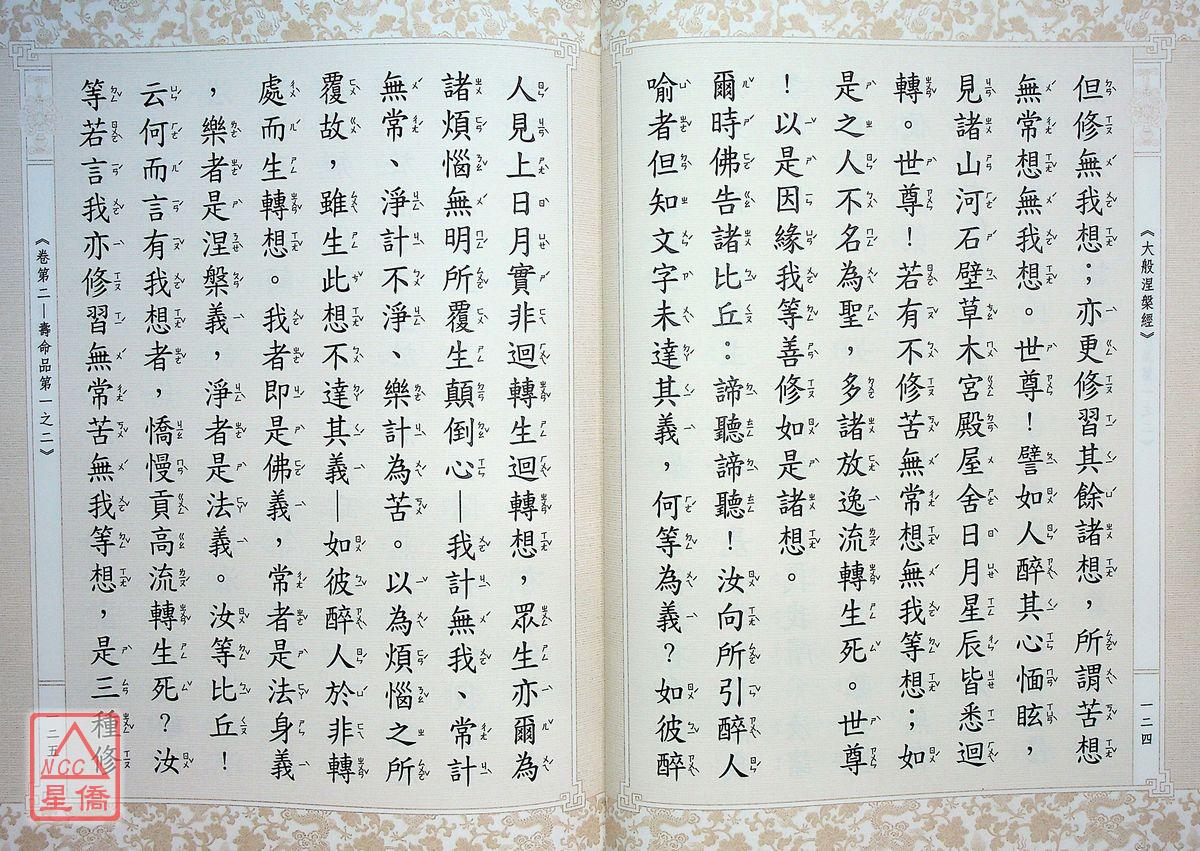 《大般涅槃經》
一二四
但修無我想；亦更修習其餘諸想，所謂苦想
無常想無我想。世尊！譬如人醉其心愐眩，
見諸山河石壁草木宮殿屋舍日月星辰皆悉迴
轉。世尊！若有不修苦無常想無我等想；如
是之人不名為聖，多諸放逸流轉生死。世尊
！以是因緣我等善修如是諸想。
爾時佛告諸比丘：諦聽諦聽！汝向所引醉人
喻者但知文字未達其義，何等為義？如彼醉
人見上日月實非迴轉生迴轉想，眾生亦爾為
諸煩惱無明所覆生顛倒心—我計無我、常計
無常、淨計不淨、樂計為苦。以為煩惱之所
覆故，雖生此想不達其義—如彼醉人於非轉
處而生轉想。我者即是佛義，常者是法身義
，樂者是涅槃義，淨者是法義。汝等比丘！
云何而言有我想者，憍慢貢高流轉生死？汝
等若言我亦修習無常苦無我等想，是三種修
《卷第二—壽命品第一之二》
一二五
NCC
星僑